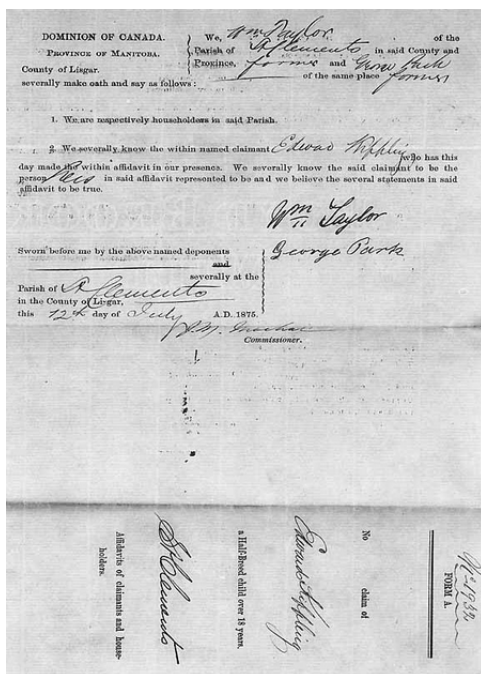 DOMINION OF CANADA.
PROVINCE OF MANITOBA.
County of Lisgar.
We, Wm Taylor of the
Parish of St Clements in said County and
Province, farmer and George Park
of the same place farmer
severally make oath and say as follows :
1. We are respectively householders in said Parish.
2. We severally know the within named claimant Edward Kippling who has this
day made the within affidavit in our presence. We severally know the said claimant to be the
person in said affidavit represented to be and we believe the several statements in said
affidavit to be true.
Wm Taylor
George Park
Sworn before me by the above named deponents
and
severally at the
Parish of St Clements
in the County of Lisgar,
this 12th day of July A.D. 1875.
Commissioner.
No 1932
FORM A.
No claim of
Edward Kippling
a Half-Breed child over 18 years.
St Clements
Affidavits of claimants and house-
holders.